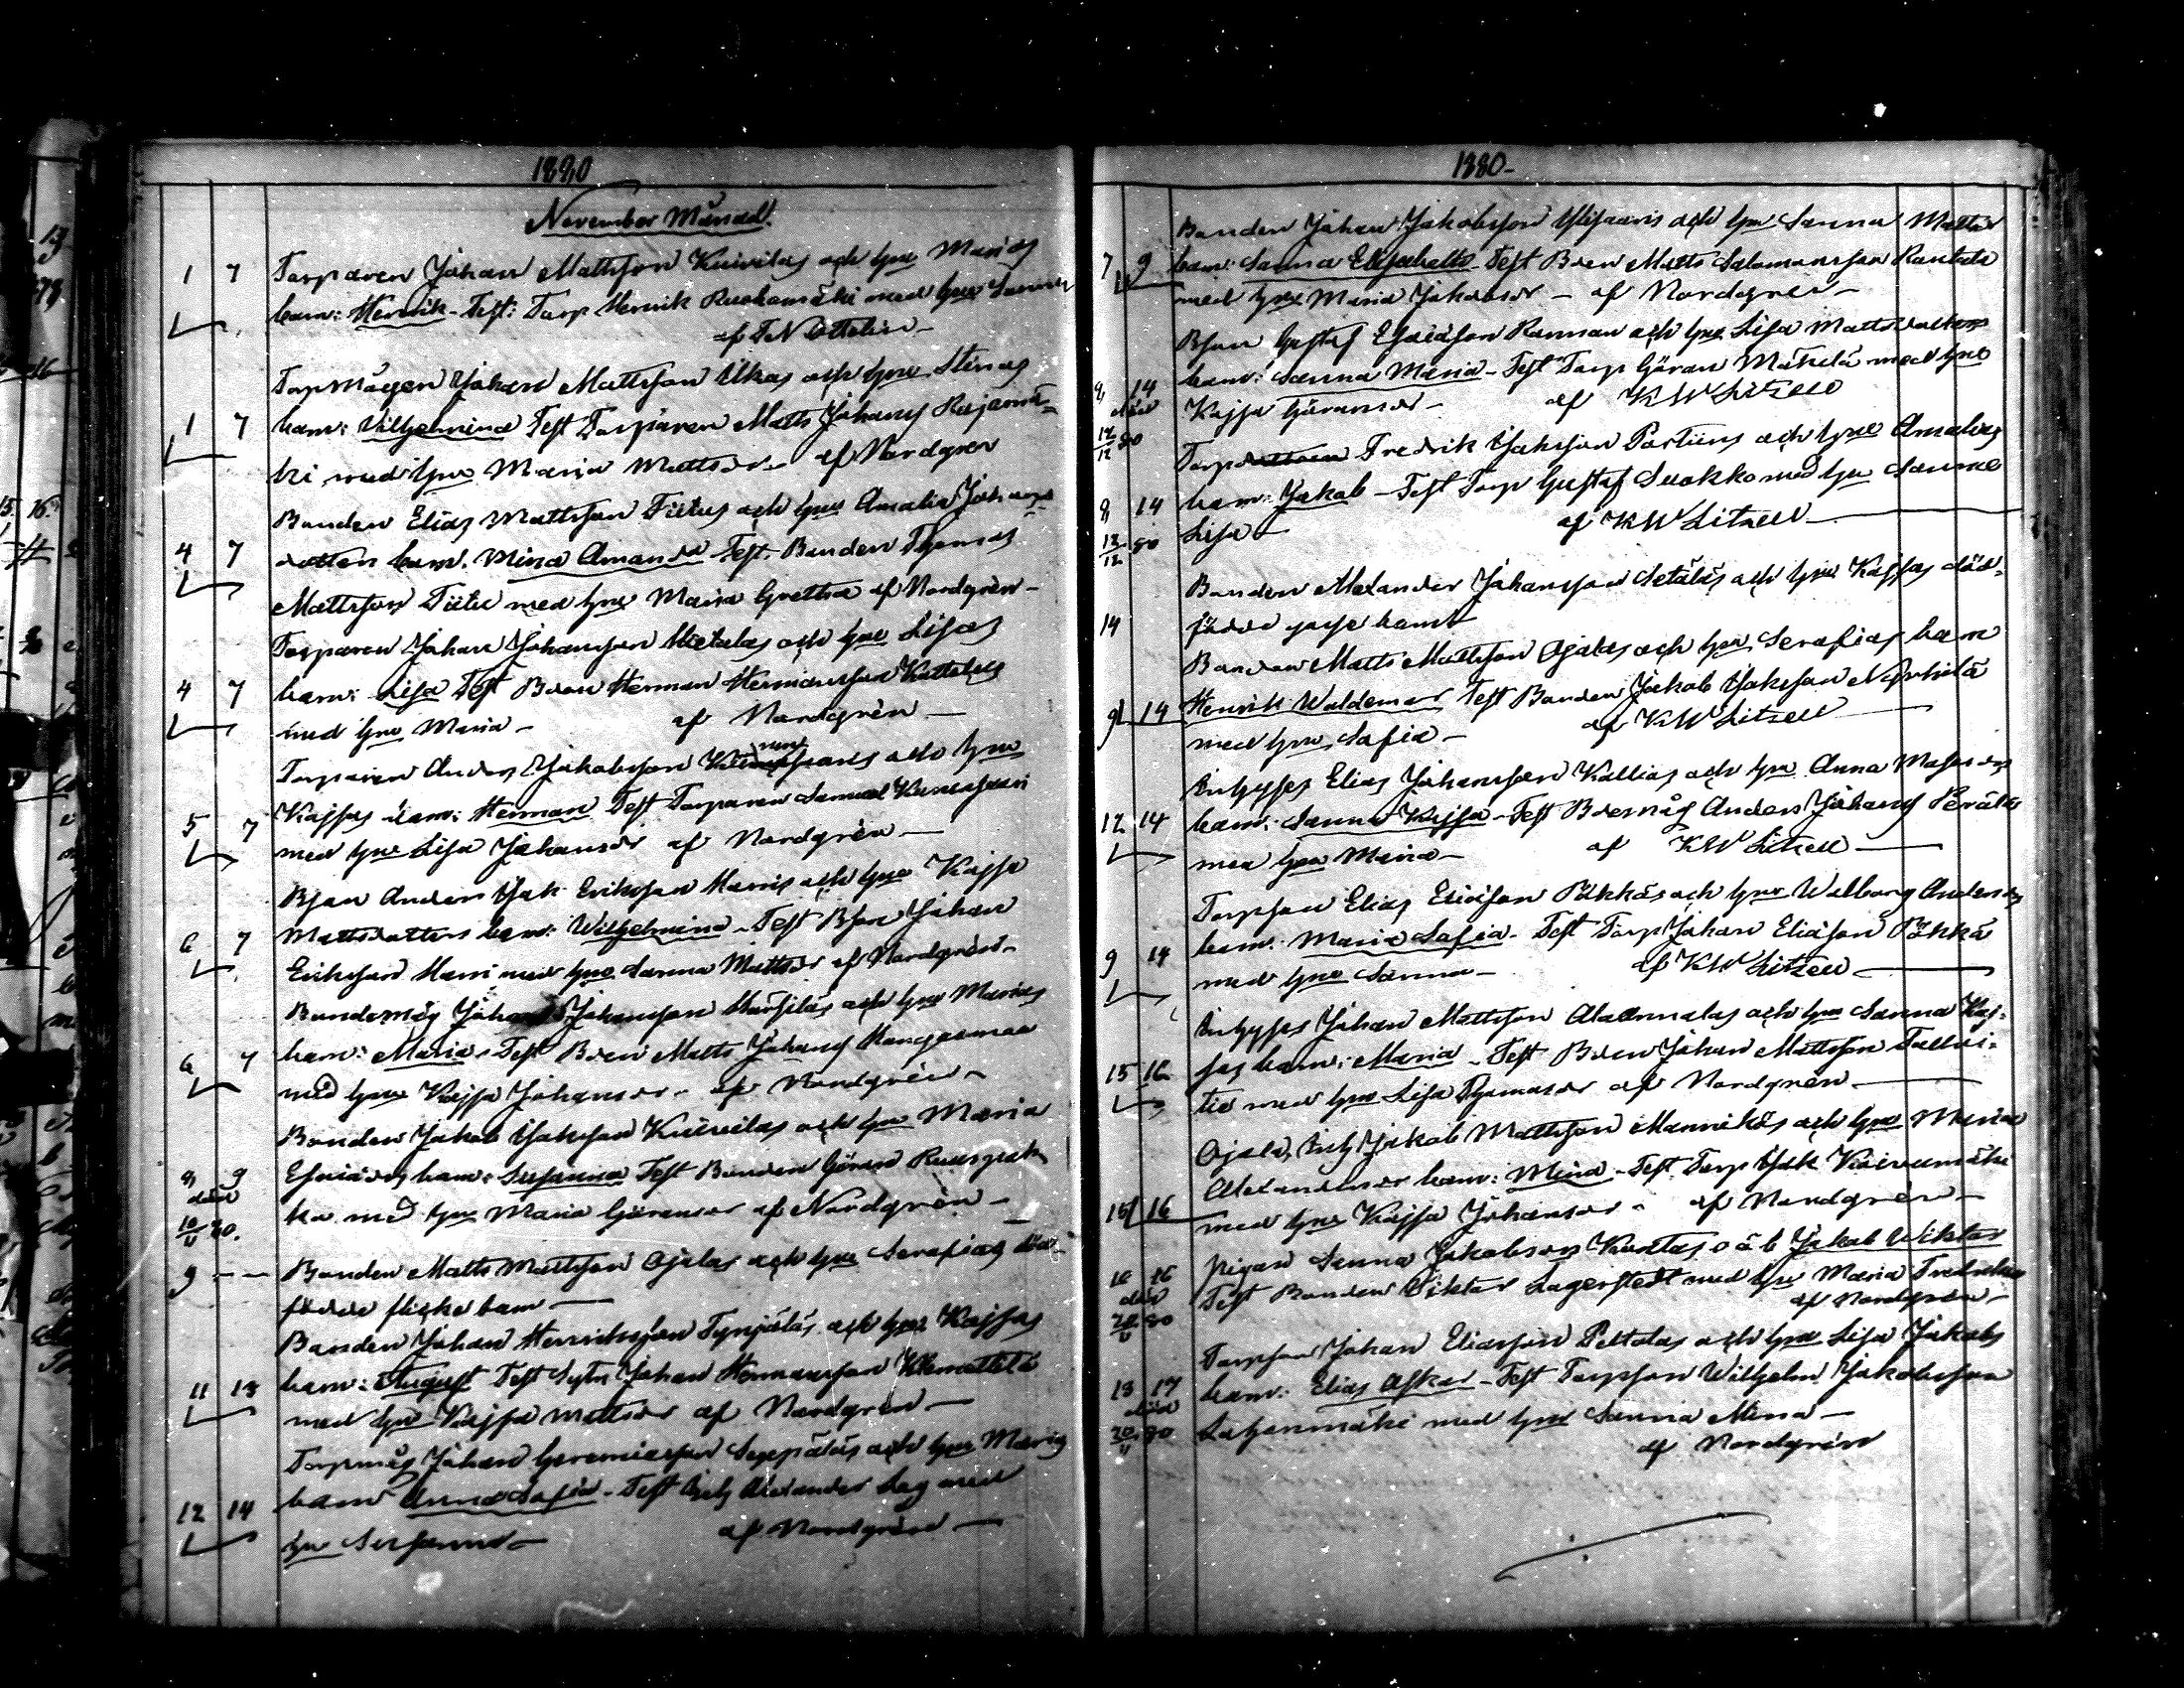 1880
November Månad.
1 7 Torparen Johan Mattsson Kuivilas och hru Marias
barn: Henrik - Test: Torp Henrik Ruohomäki med hru Sanna
af
Torpmågen Johan Mattsson Ukas och hru Stinas
1 7 barn: Vilhelmina Test Torparen Matts Johans Rajamä-
ki med hru Maria Mattsdr - af Nordgren
Bonden Elias Mattsson Tiitus och hru Amalia Johans-
4 7 dotters barn. Mina Amanda Test. Bonden Thomas
Mattsson Tiitu med hru Maria Gretha af Nordgrén -
Torparen Johan Johansson Hietalas och hru Lisas
4 7 barn: Lisa Test Bden Herman Hermansson
med hru Maria - af Nordgrén -
Torparen Anders Jakobsson och hru
Kajsas barn: Herman Test Torparen Samuel
5 7 med hru Lisa Johansdr af Nordgrén -
Bson Anders Isak Eriksson Harris och hru Kajsa
6 7 Mattsdotters barn: Wilhelmina - Test Bson Johan
Eriksson Harri med hru Sanna Mattsdr af Nordgrén -
Bondemåg Johan Johansson och hru Marias
6 7 barn: Maria - Test Bden Matts Johans Kangasmaa
med hru Kajsa Johansdr - af Nordgrén -
Bonden Jakob Isaksson Kuivilas och hru Maria
8 9 Esaiadrs barn: Susanna Test Bonden Göran
död
10/11 80. med hru Maria Göransdr af Nordgrén -
9 - - Bonden Matts Mattsson Ojalas och hru Serafias död-
födde flicke barn -
Bonden Johan Henriksson Tynjäläs och hru Kajsas
11 13 barn: August Test Sytn Johan Hermansson
med hru Kajsa Mattsdr af Nordgrén -
Torpmåg Johan Geremiasson Seppäläs och hru Marias
12 14 barn Anna Sofia - Test Inh Alexander med
hru Susanna - af Nordgrén -
1880 -
Bonden Johan Jakobsson Ylisaaris och hru Sanna Mattsdr
7 9 barn: Sanna Elisabeth - Test Bden Matts Salomonsson Rautula
med hru Maria Jakobsdr - af Nordgrén -
Bson Gustaf Esaiasson och hru Lisa Mattsdotters
8 14 barn: Sanna Maria - Test Torp Göran Mäkelä med hru
död
12/12 80 Kajsa Göransdr - af KW Litzell
Torp Fredrik Isaksson och hru Amalias
8 14 barn: Jakob - Test Torp Gustaf Suokko med hru Sanna
12/12 80 Lisa - af KW Litzell -
Bonden Alexander Johansson och hru Kajsas död-
14 födde gosse barn
Bonden Matts Mattsson Ojalas och hru Serafias barn
9 14 Henrik Waldemar Test Bonden Jakob Isaksson
med hru Sofia - af KW Litzell -
Inhyses Elias Johansson Kallias och hru Anna
12 14 barn: Sanna Kajsa - Test Bdemåg Anders Johans Perälä
med hru Maria - af KW Litzell -
Torpson Elias Eliasson Pökkäs och hru Walborg Andersdrs
9 14 barn: Maria Sofia - Test Torp Johan Eliasson Pökkä
med hru Sanna - af KW Litzell -
Inhyses Johan Mattsson och hru Sanna Kaj-
15 16 sas barn: Maria - Test Bden Johan Mattsson
med hru Lisa Thomasdr af Nordgrén -
Ojala, Inh Jakob Mattsson Mannikös och hru Maria
Alexandersdr barn: Mina - Test Torp Isak Koivumäki
15 16 med hru Kajsa Johansdr - af Nordgrén -
16 16 Pigan Sanna Jakobsdrs o ä b Jakob Wiktor
död Test Bonden Viktor Lagerstedt med hru Maria
20/11 80 af Nordgrén -
Torpson Johan Eliasson Peltolas och hru Lisa Jakobs
13 17 barn: Elias Oskar - Test Torpson Wilhelm Jakobsson
död
20/11 80 med hru Sanna Mina -
af Nordgrén